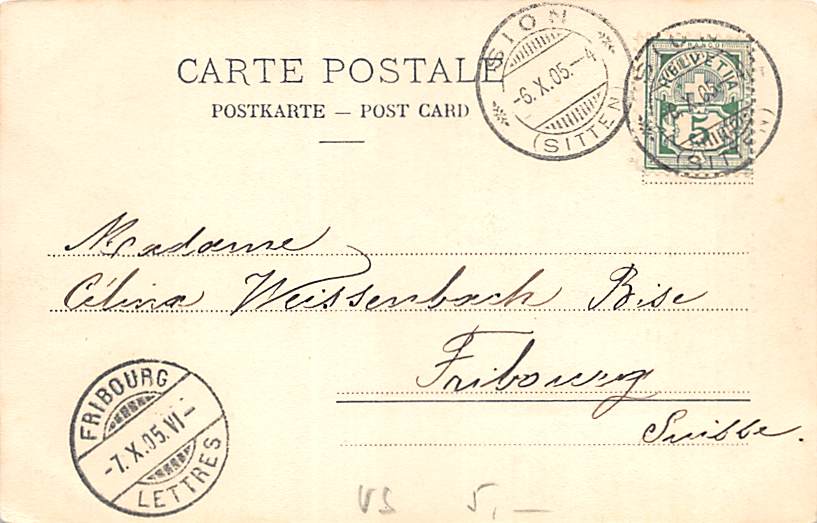 CARTE POSTALE
POSTKARTE — POST CARD
SION
-6.X.05.-4
(SITTEN)
HELVETIA
5
(SITTEN)
Madame
Célina Weissenbach Bise
Fribourg
Suisse.
FRIBOURG
-7.X.05.VI-
LETTRES
VS 5,-